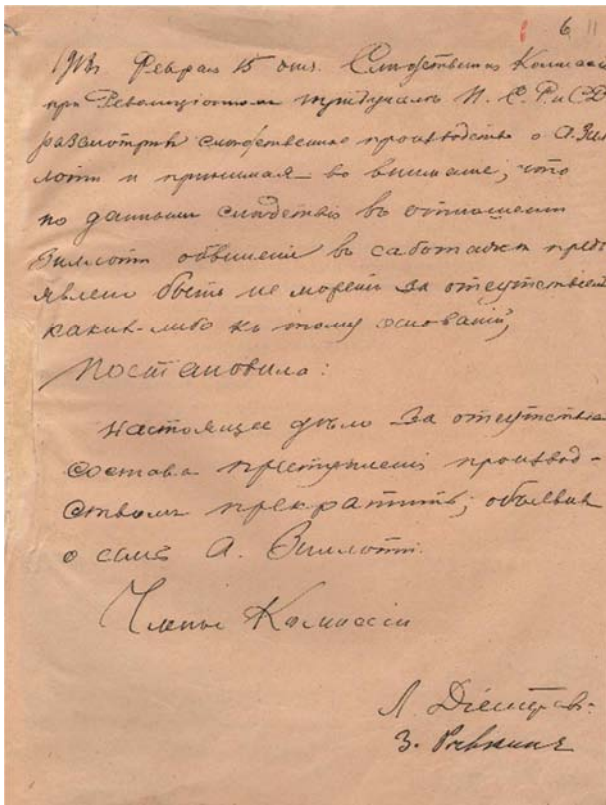 6 11
1918г. Февраля 15 дня. Следственная Комиссия
при Революціонномъ трибуналѣ П. С. Р. и С. Д.
разсмотрѣвъ слѣдственное производство о А. Зил
лоти и принимая во вниманіе, что
по даннымъ слѣдствія въ отношеніи
Зиллоти обвиненіе въ саботажѣ предъ
явлено быть не можетъ за отсутствіемъ
какихъ-либо къ тому основаній,
Постановила:
Настоящее дѣло за отсутствіемъ
состава преступленія производ-
ствомъ прекратить, объявивъ
о семъ А. Зиллоти.
Члены Комиссіи
Л.
З.